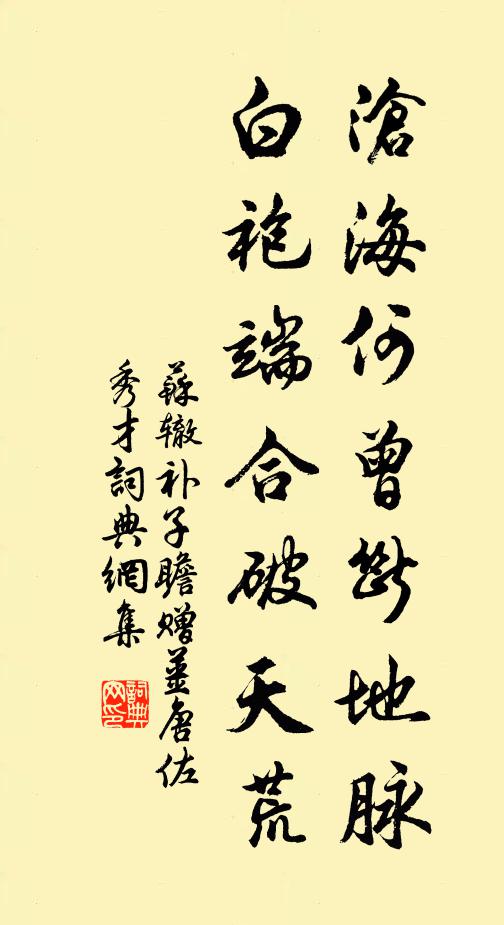 滄海何曾斷地脉
白袍端合破天荒
蘇辙补子瞻赠姜唐佐
秀才詞典網集
詞典
网印